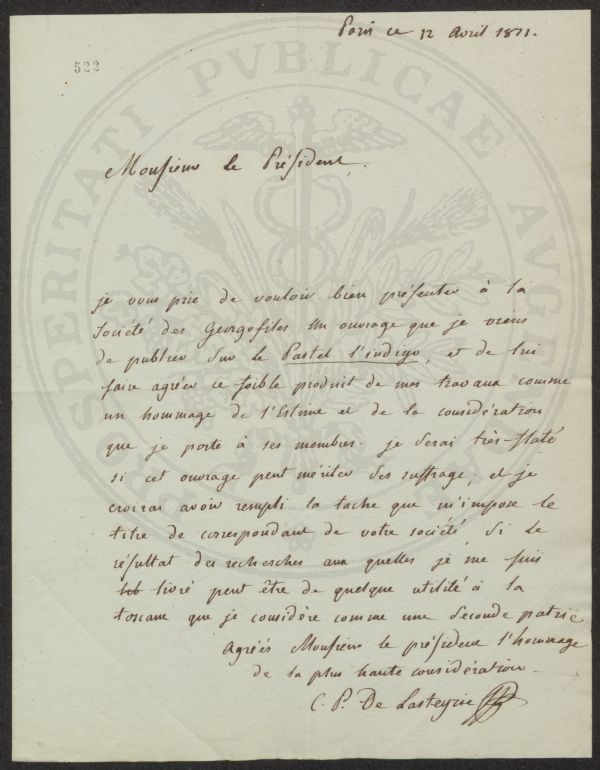 Paris ce 12 avril 1811.
522
PROSPERITATI PVBLICAE AVGENDAE
Monsieur le Président.
je vous prie de vouloir bien présenter à la
Société des Georgofiles un ouvrage que je viens
de publier sur le Pastel l'indigo, et de lui
faire agréer ce foible produit de mes travaux comme
un hommage de l'Estime et de la considération
que je porte à ses membres. je serai très-flaté
si cet ouvrage peut mériter des suffrage, et je
croirai avoir rempli la tache que m'impose le
titre de correspondant de votre société, si le
résultat des recherches aux quelles je me suis
livré peut être de quelque utilité à la
toscane que je considère comme une seconde patrie
Agréés Monsieur le président l'hommage
de la plus haute considération
C. P. De Lasteyrie